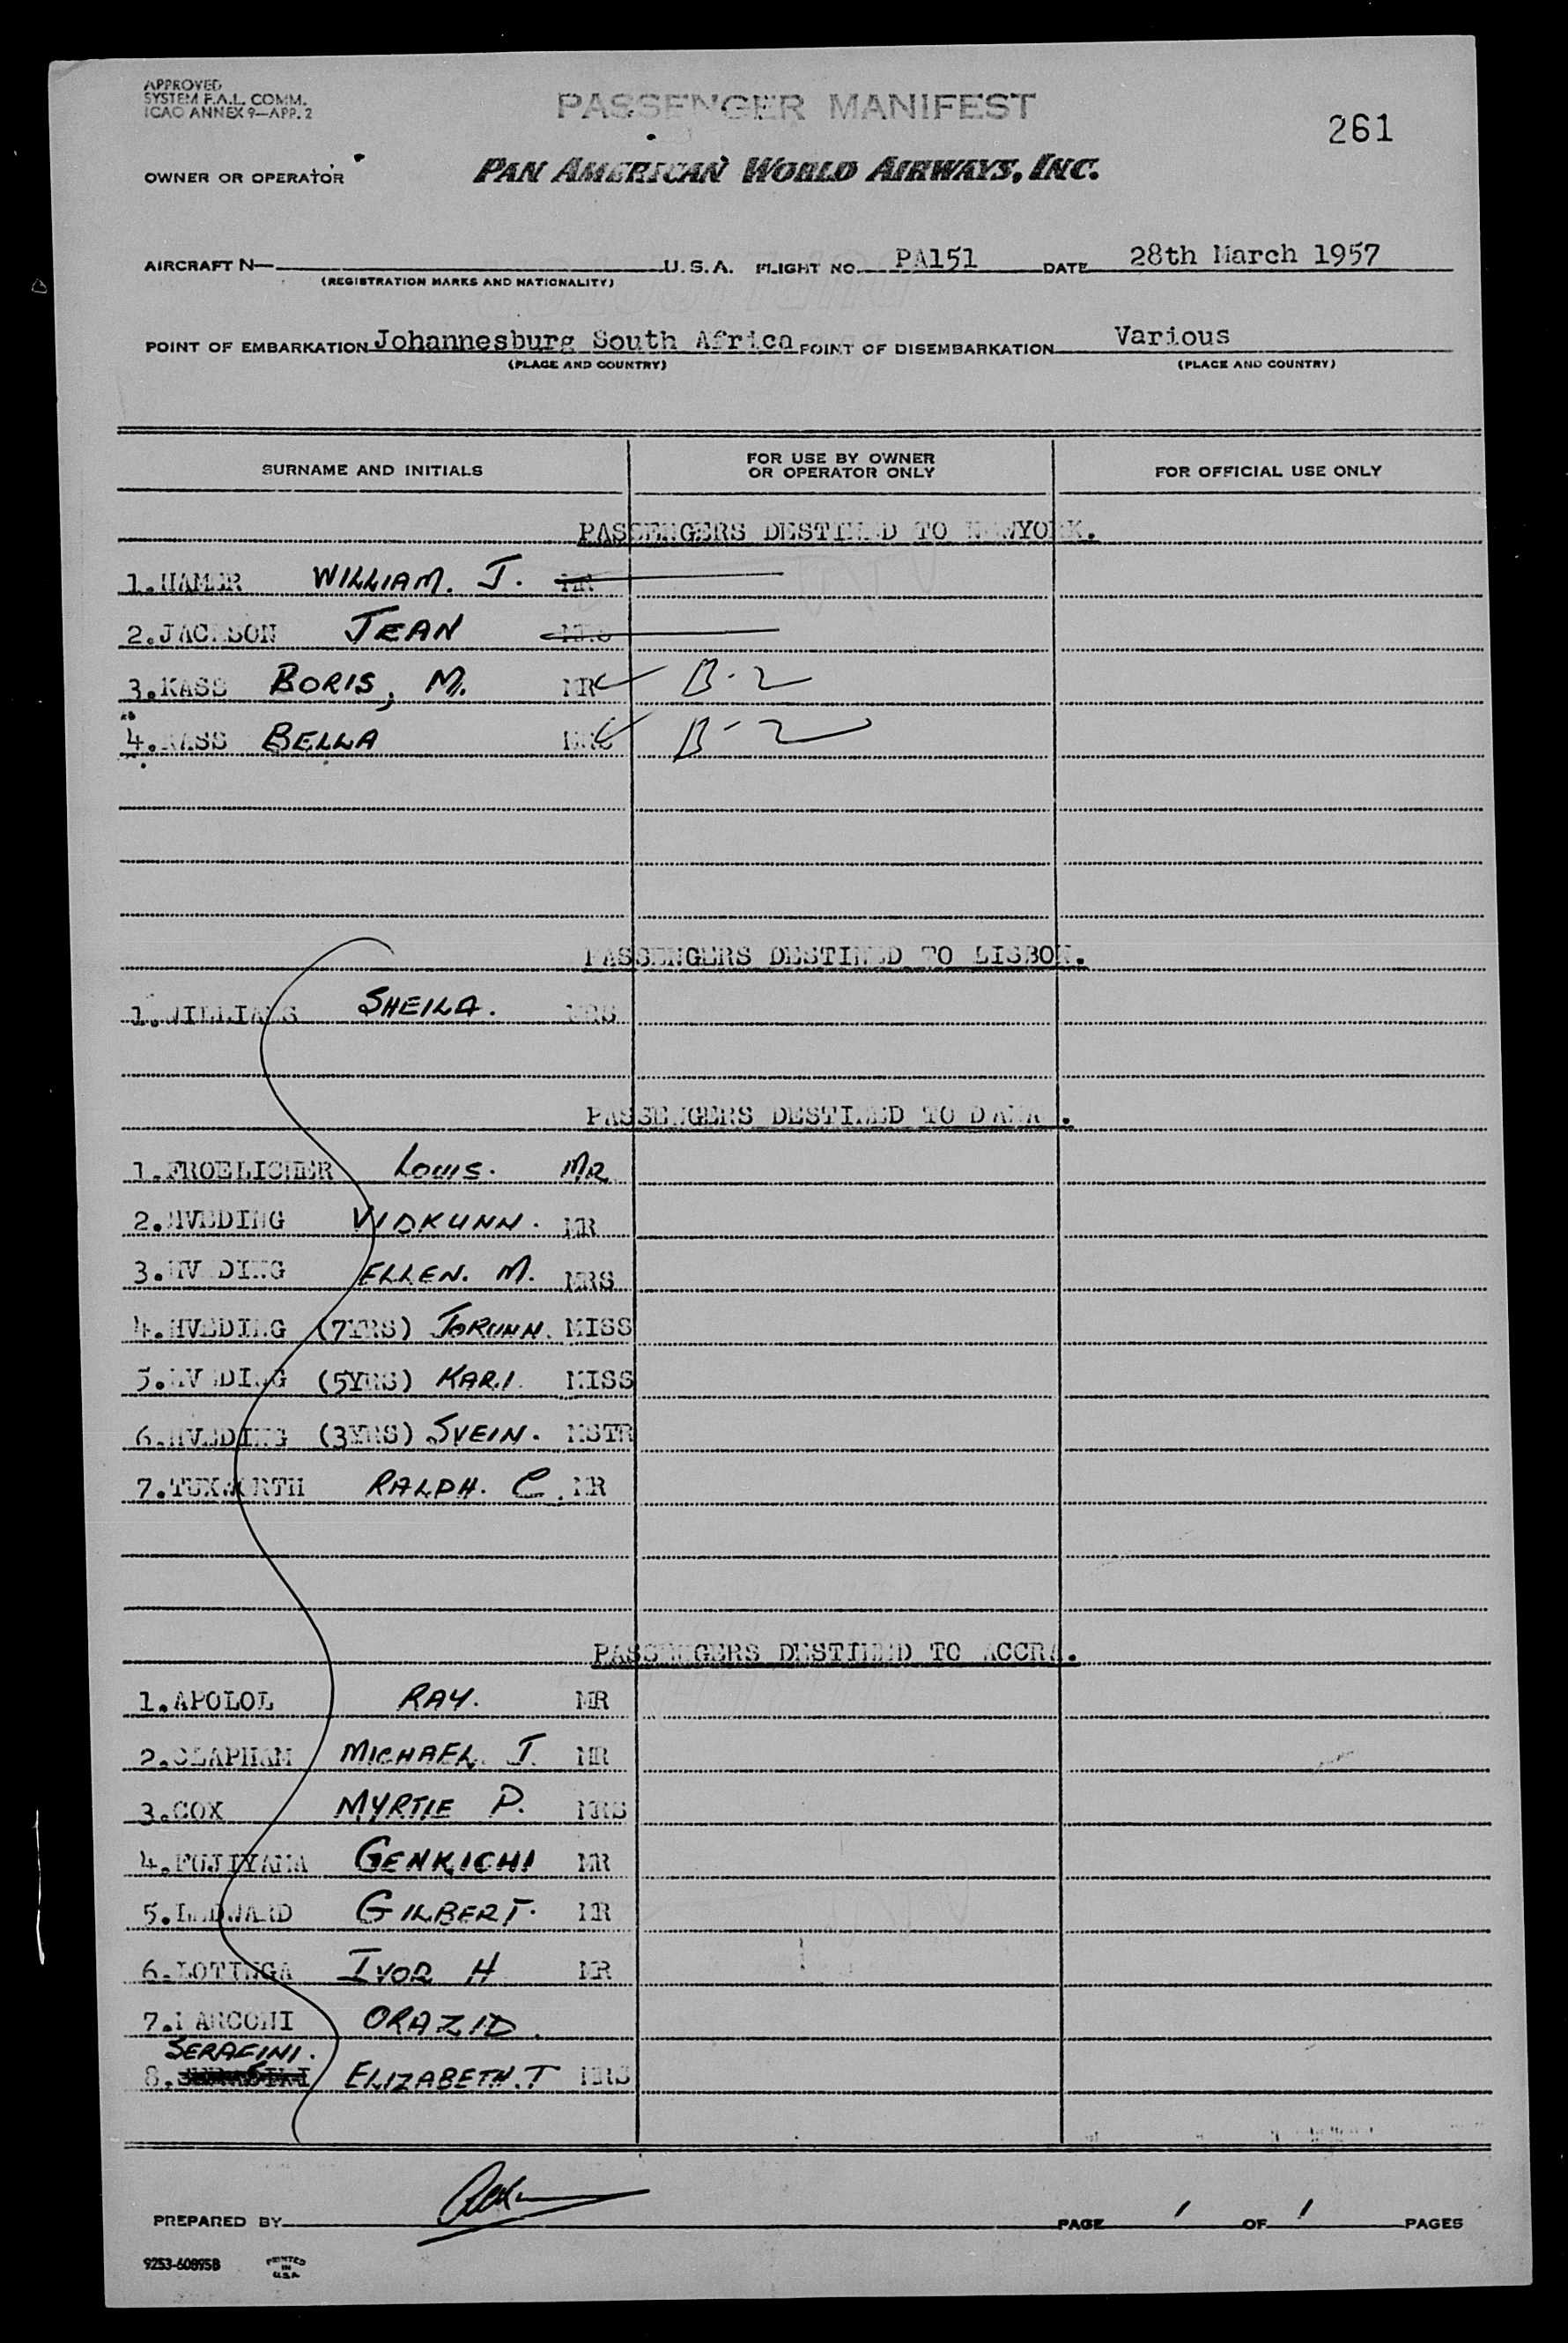 APPROVED
SYSTEM F.A.L. COMM.
ICAO ANNEX 9—APP. 2
PASSENGER MANIFEST
261
OWNER OR OPERATOR
PAN AMERICAN WORLD AIRWAYS, INC.
AIRCRAFT N— U.S.A. FLIGHT NO. PA151 DATE 28th March 1957
(REGISTRATION MARKS AND NATIONALITY)
POINT OF EMBARKATION Johannesburg South Africa POINT OF DISEMBARKATION Various
(PLACE AND COUNTRY) (PLACE AND COUNTRY)
SURNAME AND INITIALS
FOR USE BY OWNER
OR OPERATOR ONLY
FOR OFFICIAL USE ONLY
PASSENGERS DESTINED TO NEWYORK.
1.HAMER WILLIAM. J. MR
2.JACKSON JEAN MRS
3.KASS BORIS, M. MR B-2
4.KASS BELLA MRS B-2
PASSENGERS DESTINED TO LISBON.
1.WILLIAMS SHEILA. MRS
PASSENGERS DESTINED TO DAKAR.
1.FROELICHER LOUIS. MR
2.HVEDING VIDKUNN. MR
3.HVEDING ELLEN. M. MRS
4.HVEDING (7YRS) JORUNN. MISS
5.HVEDING (5YRS) KARI. MISS
6.HVEDING (3YRS) SVEIN. MSTR
7.TUXWORTH RALPH. C. MR
PASSENGERS DESTINED TO ACCRA.
1.APOLOL RAY. MR
2.CLAPHAM MICHAEL. J. MR
3.COX MYRTLE P. MRS
4.FUJIYAMA GENKICHI MR
5.LEDWARD GILBERT. MR
6.LOTINGA IVOR H MR
7.MARCONI ORAZIO.
SERAFINI.
8. ELIZABETH. T MRS
PREPARED BY PAGE 1 OF 1 PAGES
9253-60895B
PRINTED
IN
U.S.A.